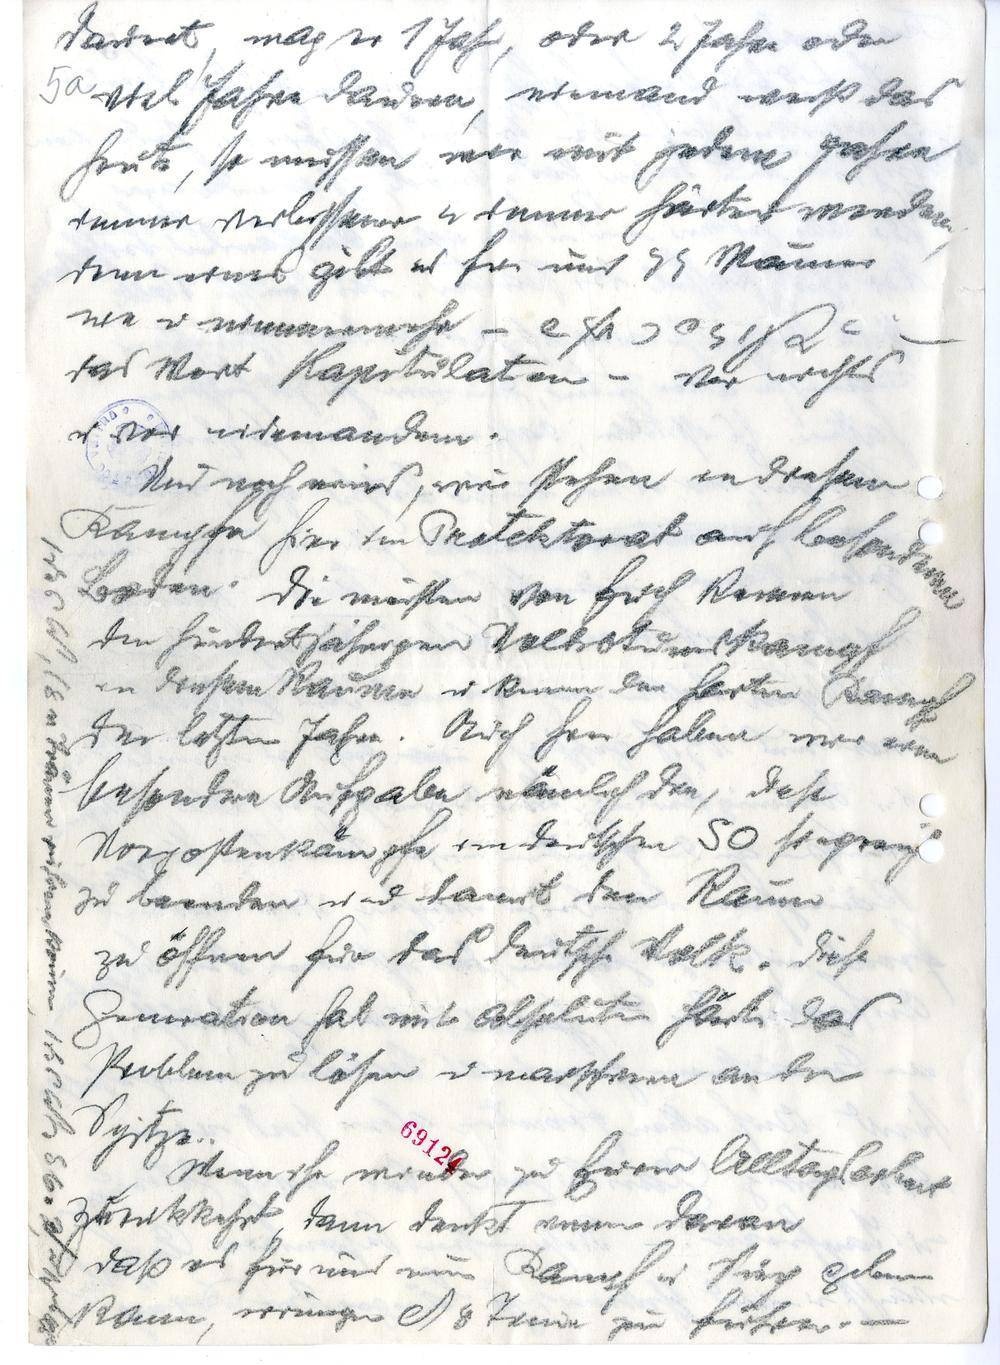 dauert, mag er 1 Jahr, oder 2 Jahre oder
5a
viel Jahre dauern, niemand weiß das
heute, so müssen wir mit jedem Jahre
immer verbissener u immer härter werden,
denn eines gibt es für uns SS Männer
nie u nimmermehr –
das Wort Kapitulation – vor nichts
u vor niemandem.
Und noch eines, wir stehen in diesem
Kampfe hier im Protektorat auf besonderem
Boden. Die meisten von Euch kennen
den hundertjährigen Volkstumskampf
in diesem Raume u kennen den harten Kampf
der letzten Jahre. Auch hier haben wir eine
besondere Aufgabe nämlich die, diese
Vorpostenkämpfe im deutschen SO siegreich
zu beenden und damit den Raum
zu öffnen für das deutsche Volk. Diese
Generation hat mit absoluter Härte das
Problem zu lösen u marschieren an der
Spitze..
69124
Wenn ihr wieder zu Eurer Alltagsarbeit
zurückkehrt, dann denkt immer daran
daß es für uns nur Kampf u Sieg geben
kann, Treue zu Führer. –